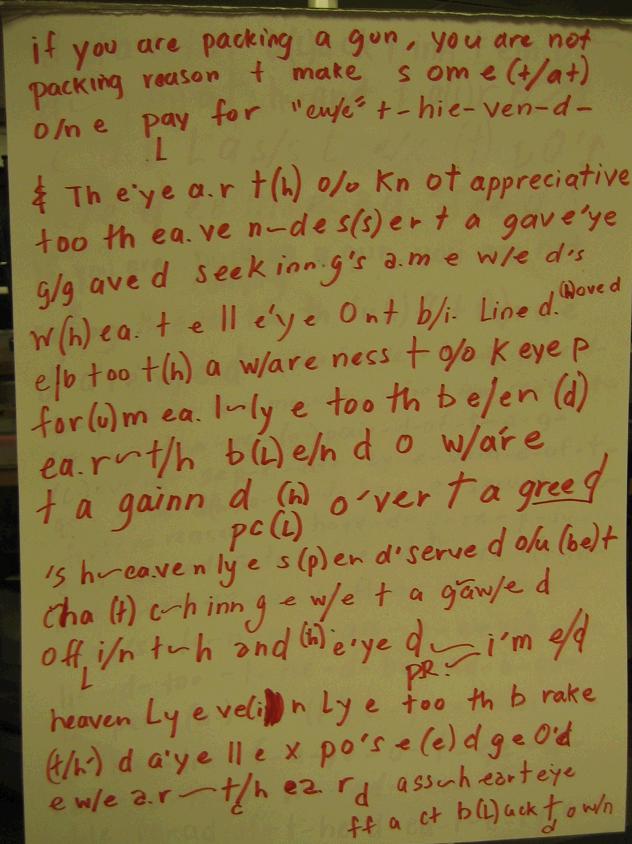 if you are packing a gun, you are not
packing reason t make s om e (t/at)
o/n e pay for "ew/e" t-hie-ven-d-
L
& Th e'ye a.r t(h) o/o Kn ot appreciative
too th ea.ve n-de s(s) er t a gave'ye
g/g aved seek inn.g's a.m e w/e d's
w(h) ea. t e ll e'ye Ont b/i. Line d. (h)ove d
e/b too t(h) a w/are ness t o/o K eye p
for(u)m ea. l-ly e too th b e/en (d)
ea.r-t/h b(L) e/n d o w/are
t a gainn d (h) o'ver t a greed
pc(L)
's h-eaven ly e s(p) en d'serve d o/u (be)t
cha (t) c-h inn g e w/e t a gaw/e d
off i/n t-h and (h) e'ye d- i'm e/d
L
PR.
heaven Ly e ve(i) n Ly e too th b rake
(t/h') d a'ye ll e x po's e (e) d g e O'd
e w/e a.r-t/h ea. r d assuh eart eye
c
ff a ct b(L) ack t o w/n
d